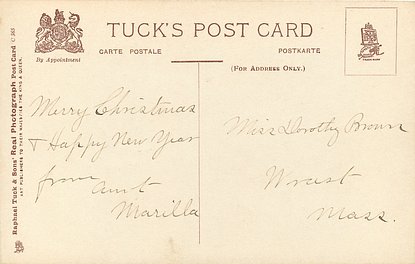 TUCK'S POST CARD
CARTE POSTALE
POSTKARTE
By Appointment
(FOR ADDRESS ONLY.)
Raphael Tuck & Sons' Real Photograph Post Card C 365
ART PUBLISHERS TO THEIR MAJESTIES THE KING & QUEEN.
Merry Christmas
& Happy New Year
from
Aunt
Marilla
Miss Dorothy Brown
Mass.